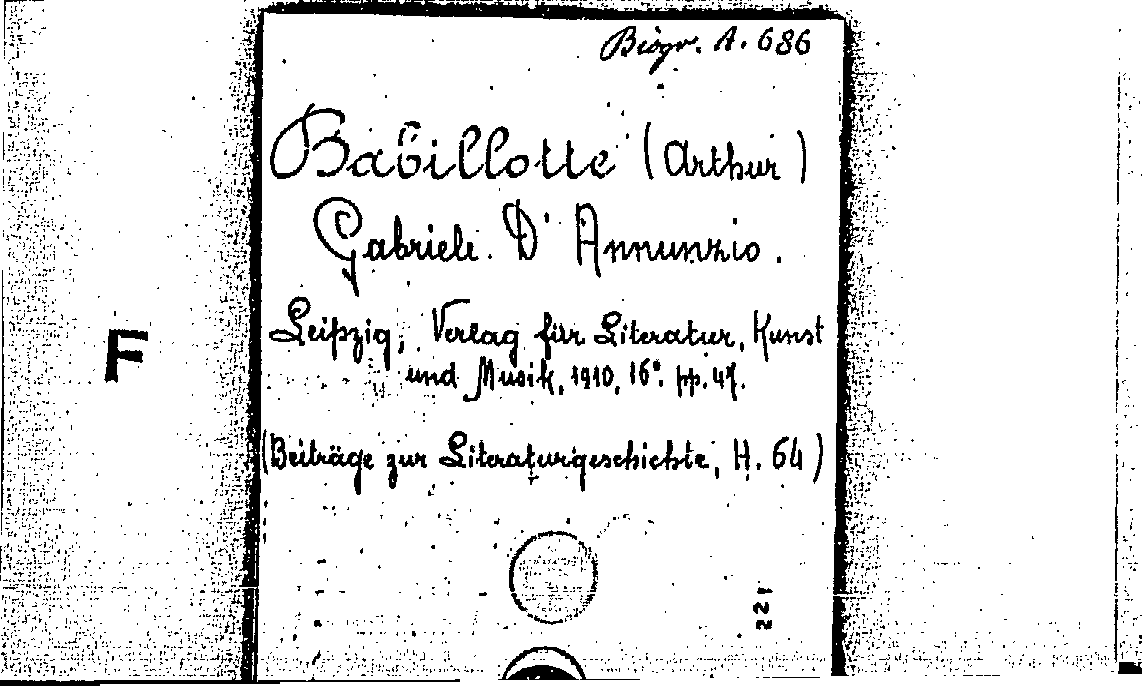 Biogr. A. 686
Babillotte (Arthur)
Gabriele D'Annunzio.
Leipzig, Verlag für Literatur, Kunst
und Musik, 1910, 16°. pp. 47.
F
(Beiträge zur Literaturgeschichte, H. 64)
221